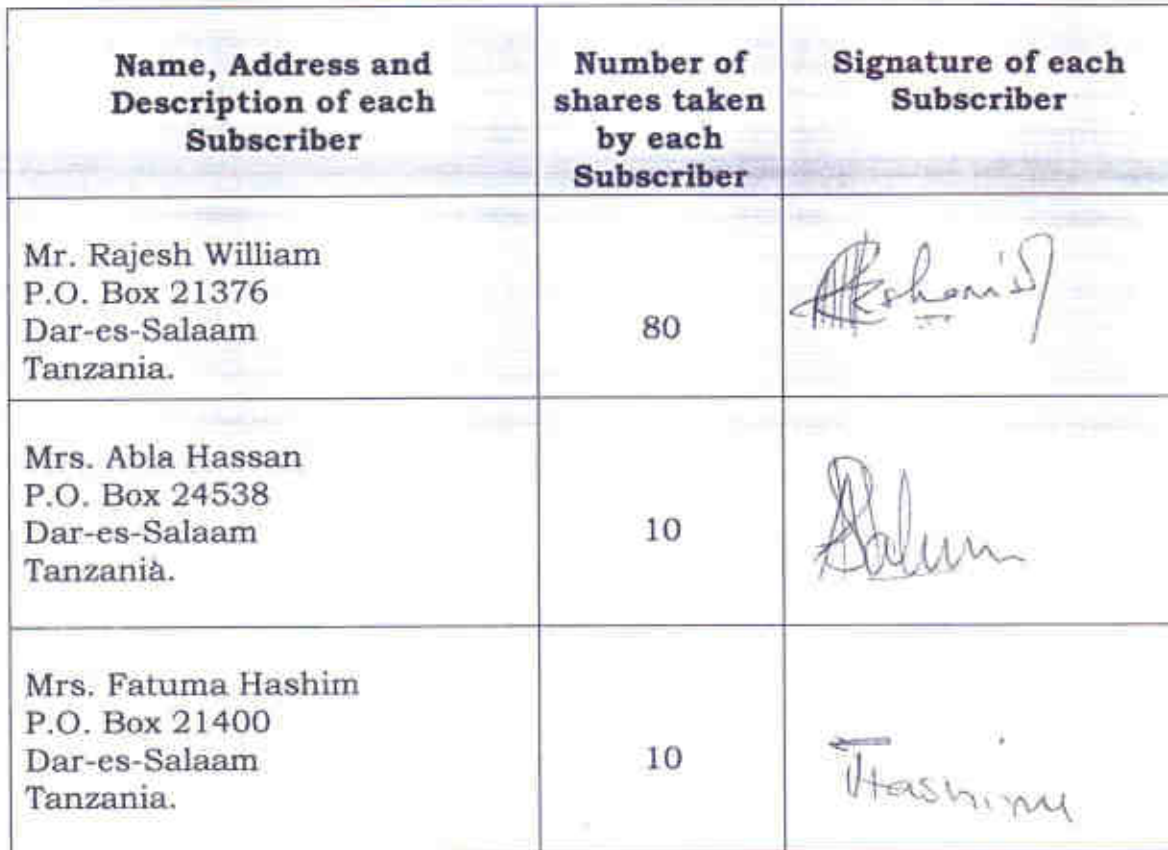 Name, Address and
Description of each
Subscriber
Number of
shares taken
by each
Subscriber
Signature of each
Subscriber
Mr. Rajesh William
P.O. Box 21376
Dar-es-Salaam
Tanzania.
80
Mrs. Abla Hassan
P.O. Box 24538
Dar-es-Salaam
Tanzania.
10
Mrs. Fatuma Hashim
P.O. Box 21400
Dar-es-Salaam
Tanzania.
10